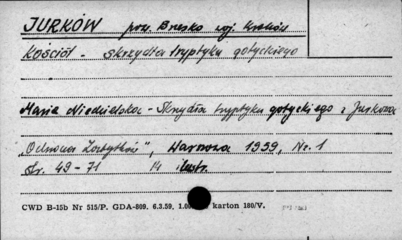 JURKÓW pow. Brzesko woj. Kraków
Kościół - skrzydła tryptyku gotyckiego
Maria Niedzielska - Skrzydła tryptyku gotyckiego z Jurkowa
„Ochrona Zabytków", Warszawa 1959, Nr. 1
str. 49-71 14 ilustr.
CWD B-15b Nr 515/P. GDA-809. 6.3.59. karton 180/V.